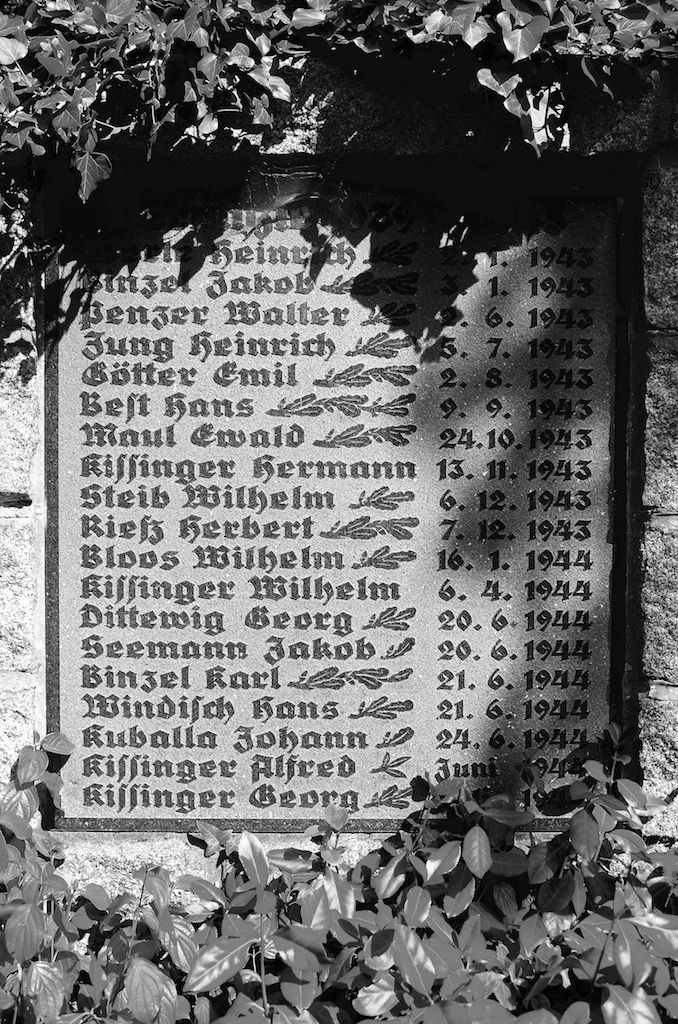 1939
Heinrich 2. 1. 1943
Binzel Jakob 3. 1. 1943
Penzer Walter 6. 1943
Jung Heinrich 5. 7. 1943
Götter Emil 2. 8. 1943
Best Hans 9. 9. 1943
Maul Ewald 24. 10. 1943
Kissinger Hermann 13. 11. 1943
Steib Wilhelm 6. 12. 1943
Rieß Herbert 7. 12. 1943
Bloos Wilhelm 16. 1. 1944
Kissinger Wilhelm 6. 4. 1944
Dittewig Georg 20. 6. 1944
Seemann Jakob 20. 6. 1944
Binzel Karl 21. 6. 1944
Windisch Hans 21. 6. 1944
Kuballa Johann 24. 6. 1944
Kissinger Alfred Juni 1944
Kissinger Georg